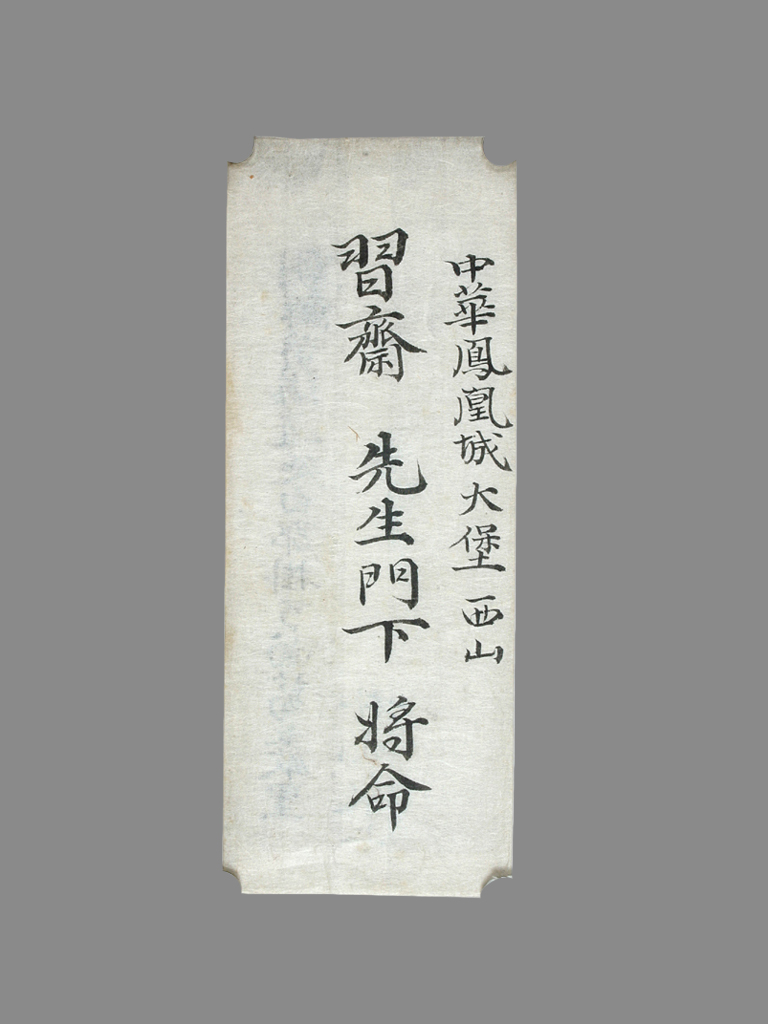 中華鳳凰城大堡西山
習齋 先生門下 將命